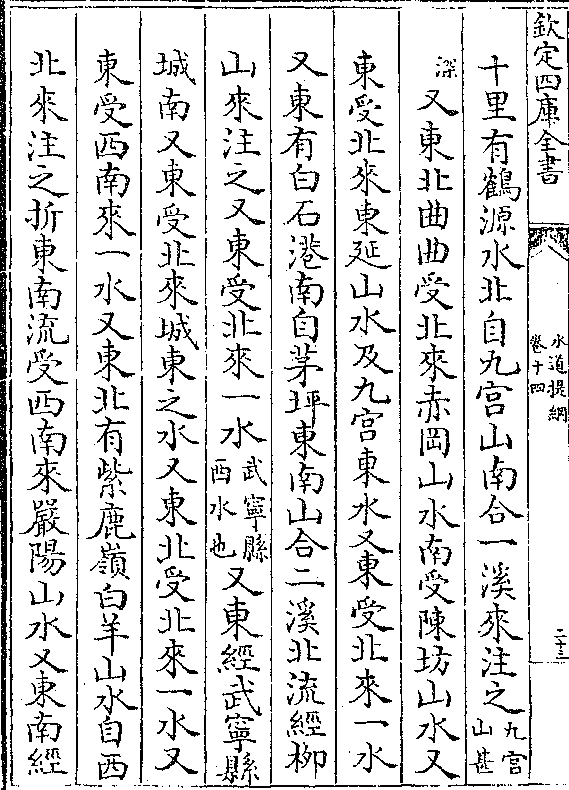 欽定四庫全書
水道提綱
卷十四
二十三
十里有鶴源水北自九宮山南合一溪來注之九宮山甚
深又東北曲曲受北來赤岡山水南受陳坊山水又
東受北來東延山水及九宮東水又東受北來一水
又東有白石港南自茅坪東南山合二溪北流經柳
山來注之又東受北來一水武寧縣西水也又東經武寧縣
城南又東受北來城東之水又東北受北來一水又
東受西南來一水又東北有紫鹿嶺白羊山水自西
北來注之折東南流受西南來嚴陽山水又東南經